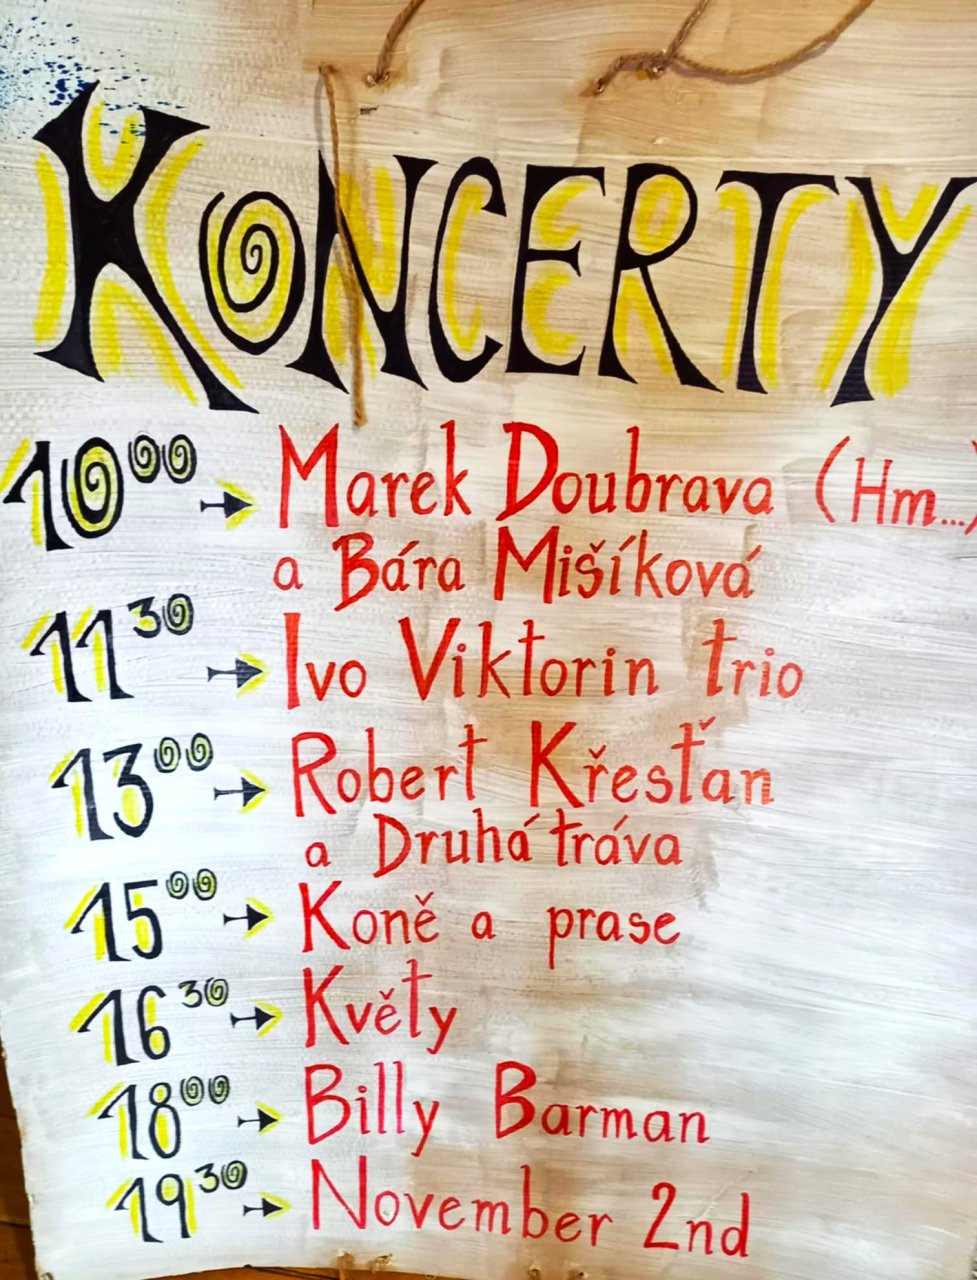 KONCERTY
10⁰⁰ → Marek Doubrava (Hm...)
a Bára Mišíková
11³⁰ → Ivo Viktorin trio
13⁰⁰ → Robert Křesťan
a Druhá tráva
15⁰⁰ → Koně a prase
16³⁰ → Květy
18⁰⁰ → Billy Barman
19³⁰ → November 2nd